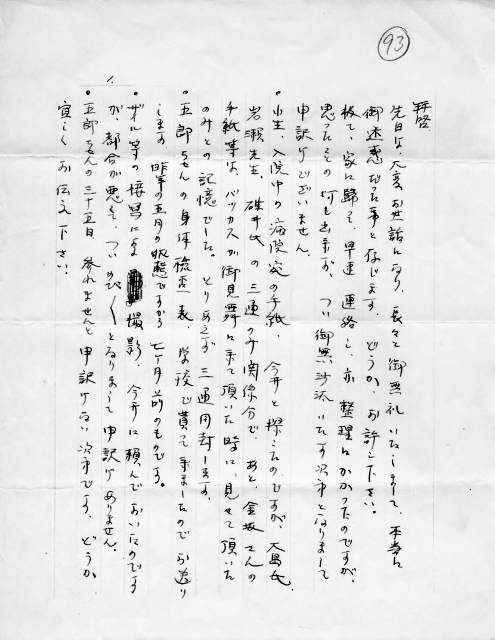 93
拝啓
先日は大変お世話になり、長々と御無礼いたしまして、本当に
御迷惑だった事と存じます。どうか、お許し下さい。
扨て、家に帰って、早速、連絡し、亦、整理にかかったのですが、
思ったその何も出来ず、つい御無沙汰いたす次第となりまして
申訳けございません。
•小生、入院中の病院宛の手紙、今井と探したのですが、大島氏、
岩瀬先生、碓井氏の三通のみ関係分で、あと、金坂さんの
手紙等は、バッカスが御見舞に来て頂いた時に、見せて頂いた
のみとの記憶でした。とりあえず三通同封します。
•五郎ちゃんの身体検査表、学校で貰って来ましたのでお送り
します。昨年の五月の状態ですから七ヶ月前のものです。
•ザイル等の接写による撮影、今井に頼んでおいたのです
が、都合が悪く、ついのび〱となりまして申訳けありません。
•五郎ちゃんの三十五日、参れませんと申訳けない次第です。どうか
宜しくお伝え下さい。